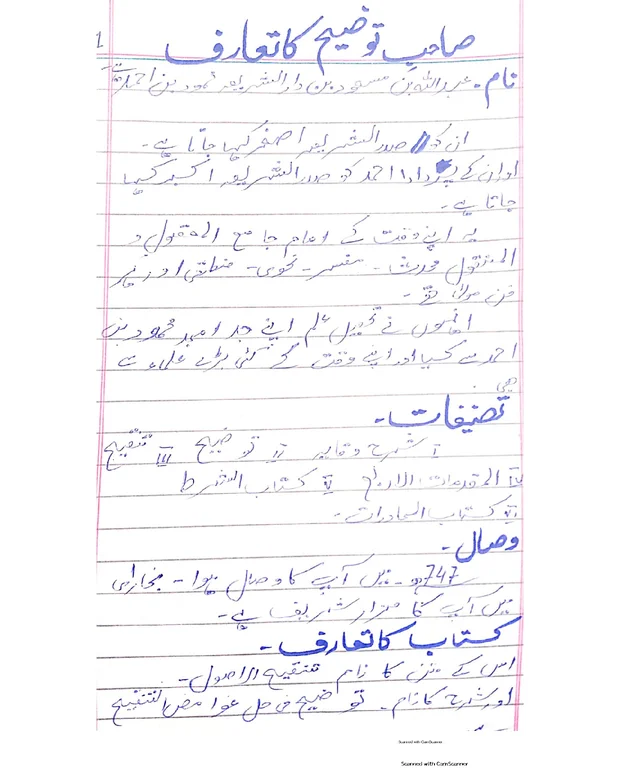 1
صاحب توضیح کا تعارف
نام۔ عبداللہ بن مسعود بن تاج الشریعہ محمود بن احمد
ان کو صدر الشریعہ اصغر کہا جاتا ہے۔
اور ان کے پردادا احمد کو صدر الشریعہ اکبر کہا
جاتا ہے۔
یہ اپنے وقت کے امام جامع المعقول و
المنقول محدث۔ مفسر۔ نحوی۔ منطقی اور
تھے۔
انہوں نے تحصیل علم اپنے جد امجد محمود بن
احمد سے کیا اور اپنے وقت کے کئی بڑے علماء سے
بھی
تصنیفات۔
i شرح وقایہ ii توضیح iii تنقیح
iv المقدمات الاربع v کتاب الشرط
vi کتاب المحاضرات۔
وصال۔
747ھ۔ میں آپ کا وصال ہوا۔ بخارا ہی
میں آپ کا مزار شریف ہے۔
کتاب کا تعارف۔
اس کے متن کا نام تنقیح الاصول۔
اور شرح کا نام۔ توضیح فی حل غوامض التنقیح
Scanned with CamScanner
Scanned with CamScanner